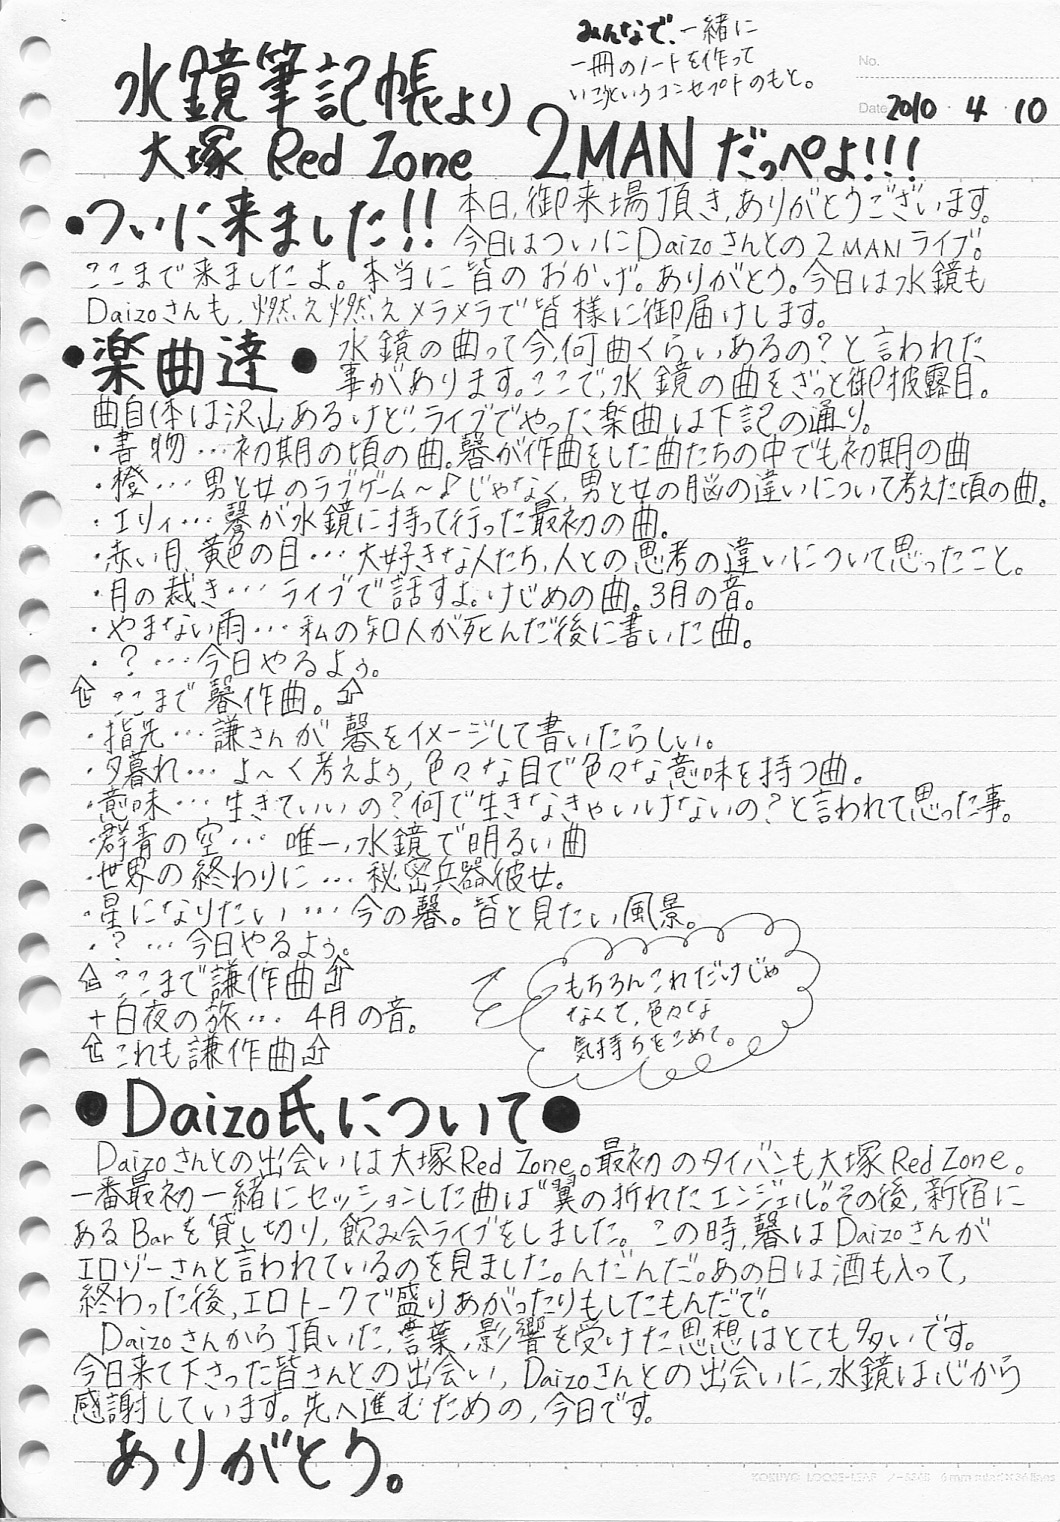 みんなで、一緒に
一冊のノートを作って
いこうというコンセプトのもと。
No.
Date 2010・4・10
水鏡筆記帳より
大塚 Red Zone 2MANだっぺよ!!!
●ついに来ました!! 本日、御来場頂き、ありがとうございます。
今日はついにDaizoさんとの2MANライブ。
ここまで来ましたよ。本当に皆のおかげ。ありがとう。今日は水鏡も
Daizoさんも、燃え燃えメラメラで皆様に御届けします。
●楽曲達● 水鏡の曲って今、何曲くらいあるの?と言われた
事があります。ここで、水鏡の曲をざっと御披露目。
曲自体は沢山あるけど、ライブでやった楽曲は下記の通り。
・書物…初期の頃の曲。馨が作曲をした曲たちの中でも初期の曲
・橙…男と女のラブゲーム〜♪じゃなく、男と女の脳の違いについて考えた頃の曲。
・エリィ…馨が水鏡に持って行った最初の曲。
・赤い月、黄色の目…大好きな人たち、人との思考の違いについて思ったこと。
・月の裁き…ライブで話すよ。けじめの曲。3月の音。
・やまない雨…私の知人が死んだ後に書いた曲。
・?…今日やるよぅ。
⇧ここまで馨作曲。⇧
・指先…謙さんが馨をイメージして書いたらしい。
・夕暮れ…よ〜く考えよぅ、色々な目で色々な意味を持つ曲。
・意味…生きていいの?何で生きなきゃいけないの?と言われて思った事。
・群青の空…唯一、水鏡で明るい曲
・世界の終わりに…秘密兵器彼女。
・星になりたい…今の馨。皆と見たい風景。
・?…今日やるよぅ。
⇧ここまで謙作曲⇧
+白夜の旅…4月の音。
⇧これも謙作曲⇧
もちろんこれだけじゃ
なくて、色々な
気持ちをこめて。
●Daizo氏について●
Daizoさんとの出会いは大塚Red Zone。最初のタイバンも大塚Red Zone。
一番最初一緒にセッションした曲は“翼の折れたエンジェル”その後、新宿に
あるBarを貸し切り、飲み会ライブをしました。この時、馨はDaizoさんが
エロゾーさんと言われているのを見ました。んだんだ。あの日は酒も入って、
終わった後、エロトークで盛りあがったりもしたもんだで。
Daizoさんから頂いた、言葉、影響を受けた思想はとても多いです。
今日来て下さった皆さんとの出会い、Daizoさんとの出会いに、水鏡は心から
感謝しています。先へ進むための、今日です。
ありがとう。
KOKUYO LOOSE-LEAF